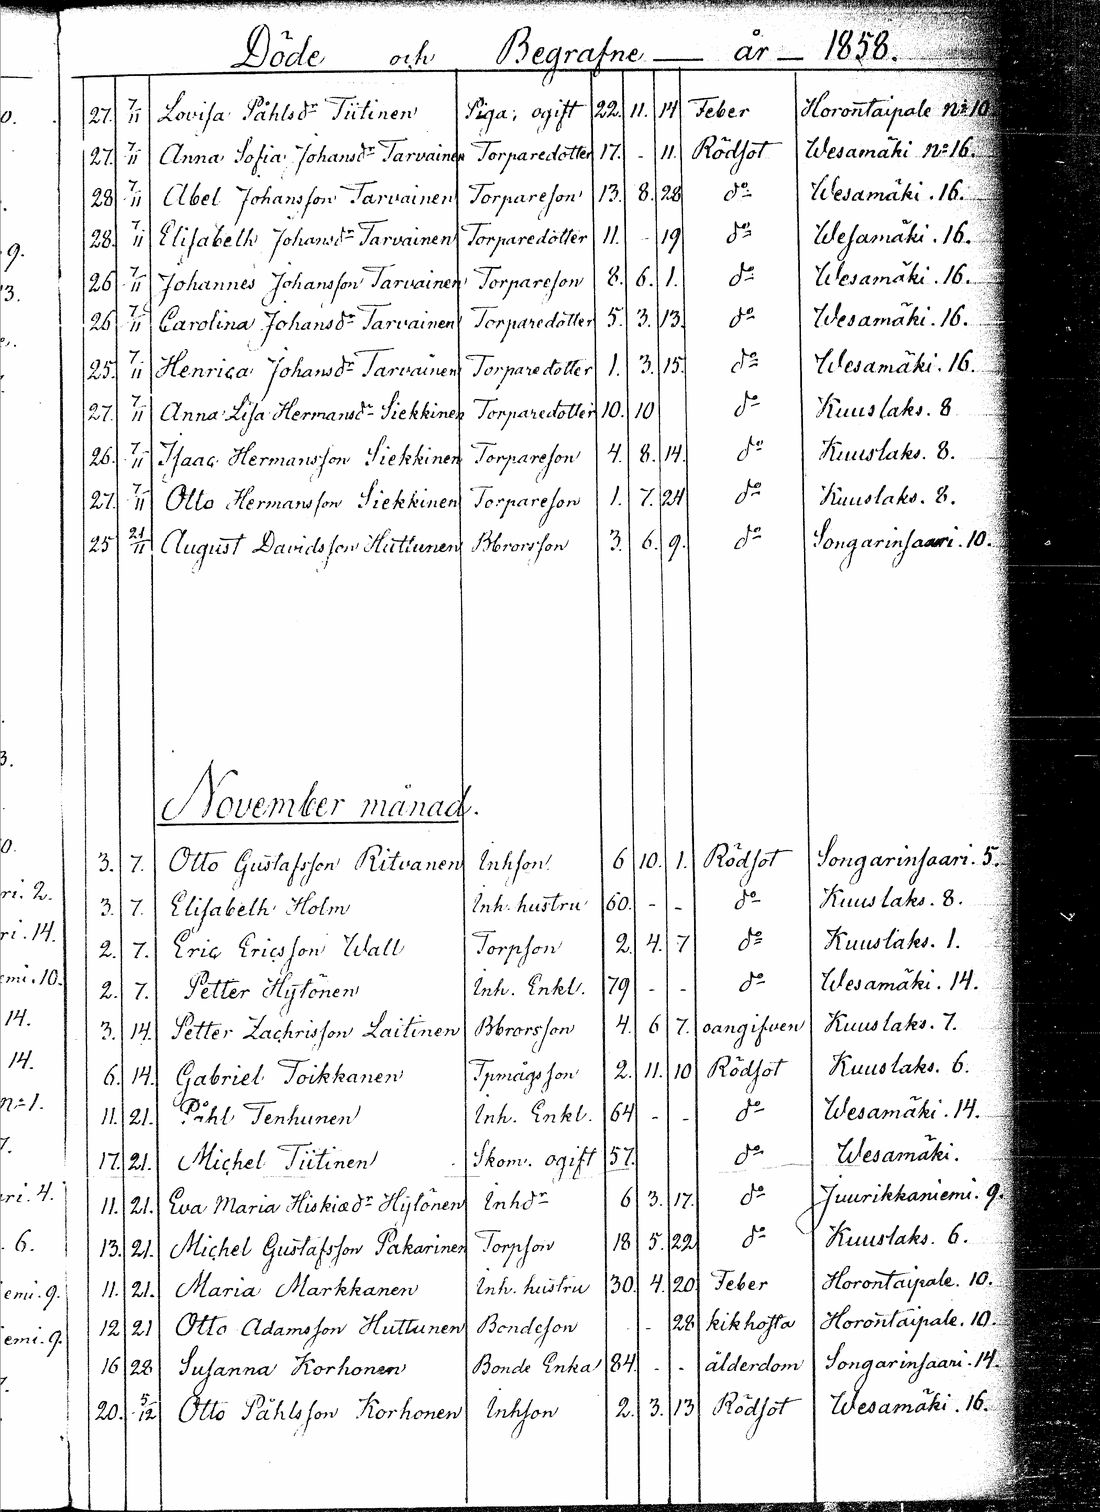 Döde och Begrafne år 1858.
27. 7/11 Lovisa Påhlsdr Tiitinen Piga, ogift 22. 11. 14 Feber Horontaipale No 10
27. 7/11 Anna Sofia Johansdr Tarvainen Torparedotter 17. - 11. Rödsot Wesamäki No 16.
28 7/11 Abel Johansson Tarvainen Torpareson 13. 8. 28 do Wesamäki. 16.
28. 7/11 Elisabeth Johansdr Tarvainen Torparedotter 11. - 19 do Wesamäki. 16.
26 7/11 Johannes Johansson Tarvainen Torpareson 8. 6. 1. do Wesamäki. 16.
26 7/11 Carolina Johansdr Tarvainen Torparedotter 5. 3. 13. do Wesamäki. 16.
25. 7/11 Henrica Johansdr Tarvainen Torparedotter 1. 3. 15. do Wesamäki. 16.
27. 7/11 Anna Lisa Hermansdr Siekkinen Torparedotter 10. 10 do Kuuslaks. 8
26. 7/11 Isaac Hermansson Siekkinen Torpareson 4. 8. 14. do Kuuslaks. 8.
27. 7/11 Otto Hermansson Siekkinen Torpareson 1. 7. 24 do Kuuslaks. 8.
25 21/11 August Davidsson Huttunen Bbrorsson 3. 6. 9. do Songarinsaari. 10.
November månad.
3. 7. Otto Gustafsson Ritvanen Inhson 6 10. 1. Rödsot Songarinsaari. 5.
3. 7. Elisabeth Holm Inh. hustru 60. - - do Kuuslaks. 8.
2. 7. Eric Ericsson Wall Torpson 2. 4. 7 do Kuuslaks. 1.
2. 7. Petter Hÿtönen Inh. Enkl. 79 - - do Wesamäki. 14.
3. 14. Petter Zachrisson Laitinen Bbrorsson 4. 6 7. oangifven Kuuslaks. 7.
6. 14. Gabriel Toikkanen Tpmågsson 2. 11. 10 Rödsot Kuuslaks. 6.
11. 21. Påhl Tenhunen Inh. Enkl. 64 - - do Wesamäki. 14.
17. 21. Michel Tiitinen Skom. ogift 57. do Wesamäki.
11. 21. Eva Maria Hiskiædr Hÿtönen Inhdr 6 3. 17. do Juurikkaniemi. 9.
13. 21. Michel Gustafsson Pakarinen Torpson 18 5. 22 do Kuuslaks. 6.
11. 21. Maria Markkanen Inh. hustru 30. 4. 20. Feber Horontaipale. 10.
12 21 Otto Adamsson Huttunen Bondeson - - 28 kikhosta Horontaipale. 10.
16 28 Susanna Korhonen Bonde Enka 84. - - ålderdom Songarinsaari. 14.
20. 5/12 Otto Påhlsson Korhonen Inhson 2. 3. 13 Rödsot Wesamäki. 16.